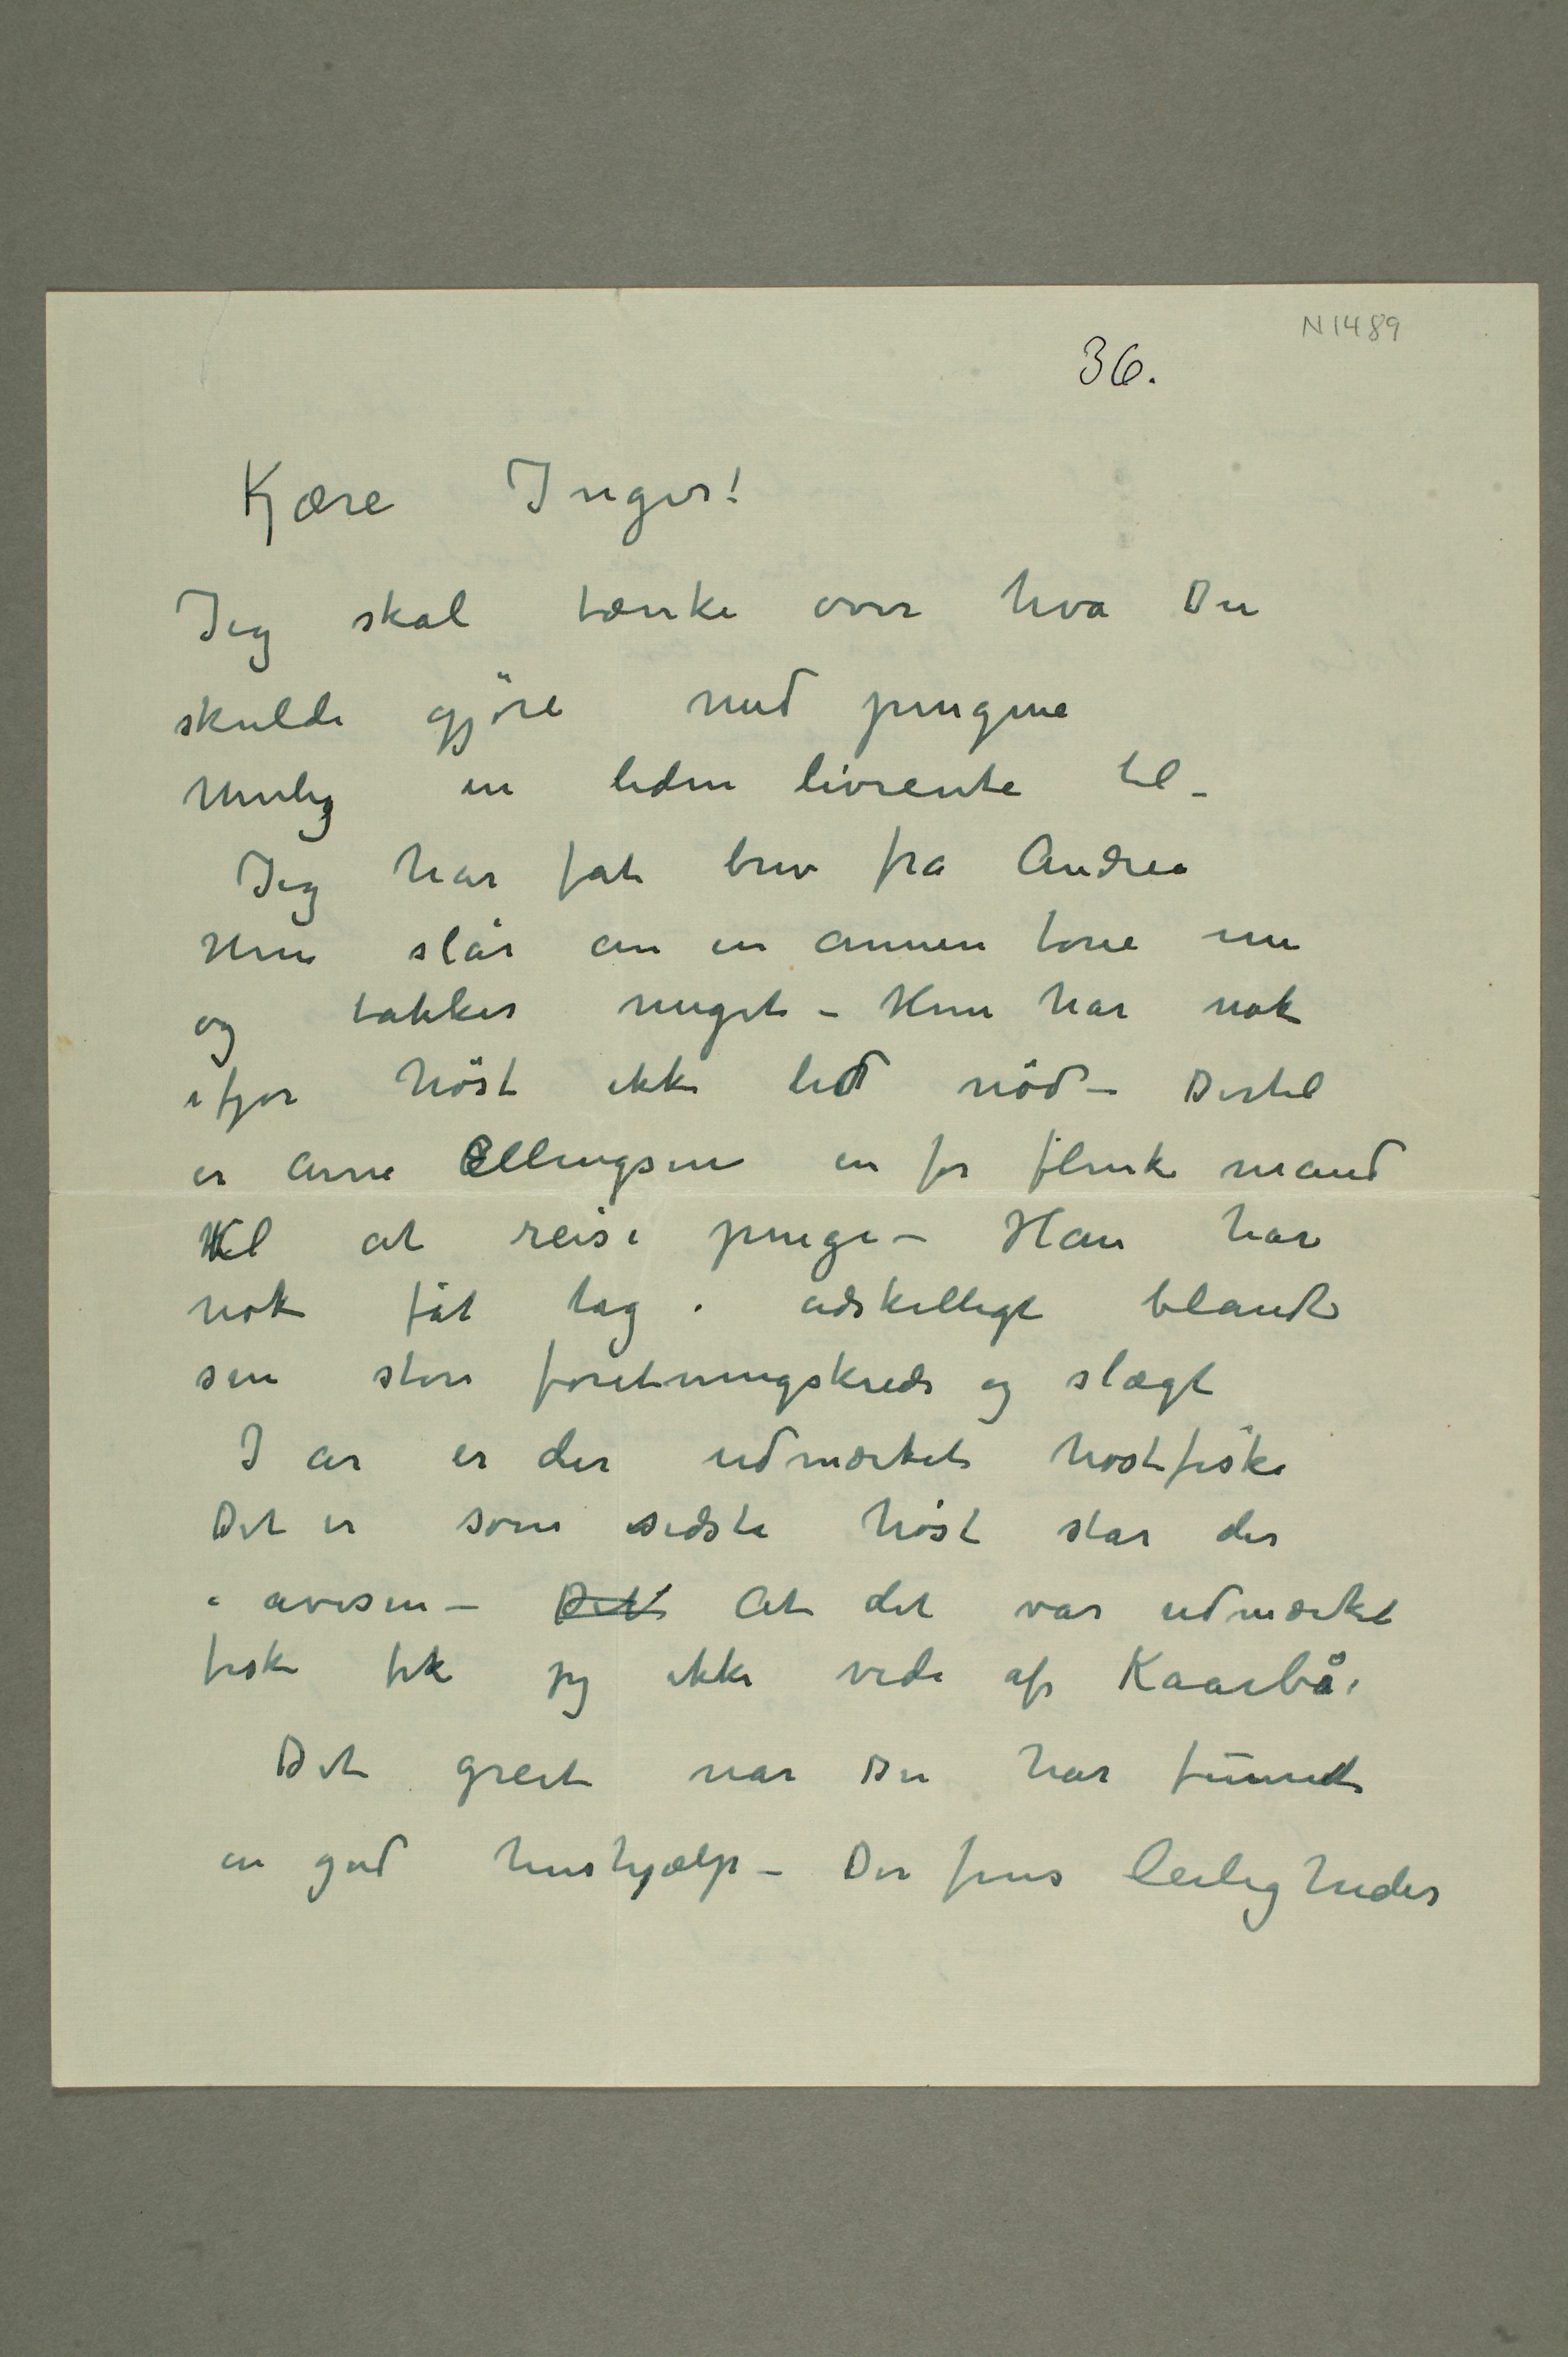 N 1489
36.
Kjære Inger!
Jeg skal tænke over hva Du
skulde gjöre med pengene
Mulig en liden livrente til –
Jeg har fåt brev fra Andrea
Hun slår an en annen tone nu
og takker meget – Hun har nok
ifjor höst ikke lidt nöd – Dertil
er Arne Ellingsen en for flink mand
til at reise penge – Han har
nok fåt tag i adskilligt blandt
sin store foretningskreds og slægt
I år er der udmærket høstfiske
Det er som sidste höst står der
i avisen – Det At det var udmærket
fiske fik jeg ikke vide af Kaarbø.
Det greit når Du har funnet
en god hushjælp – Der fins leiligheder